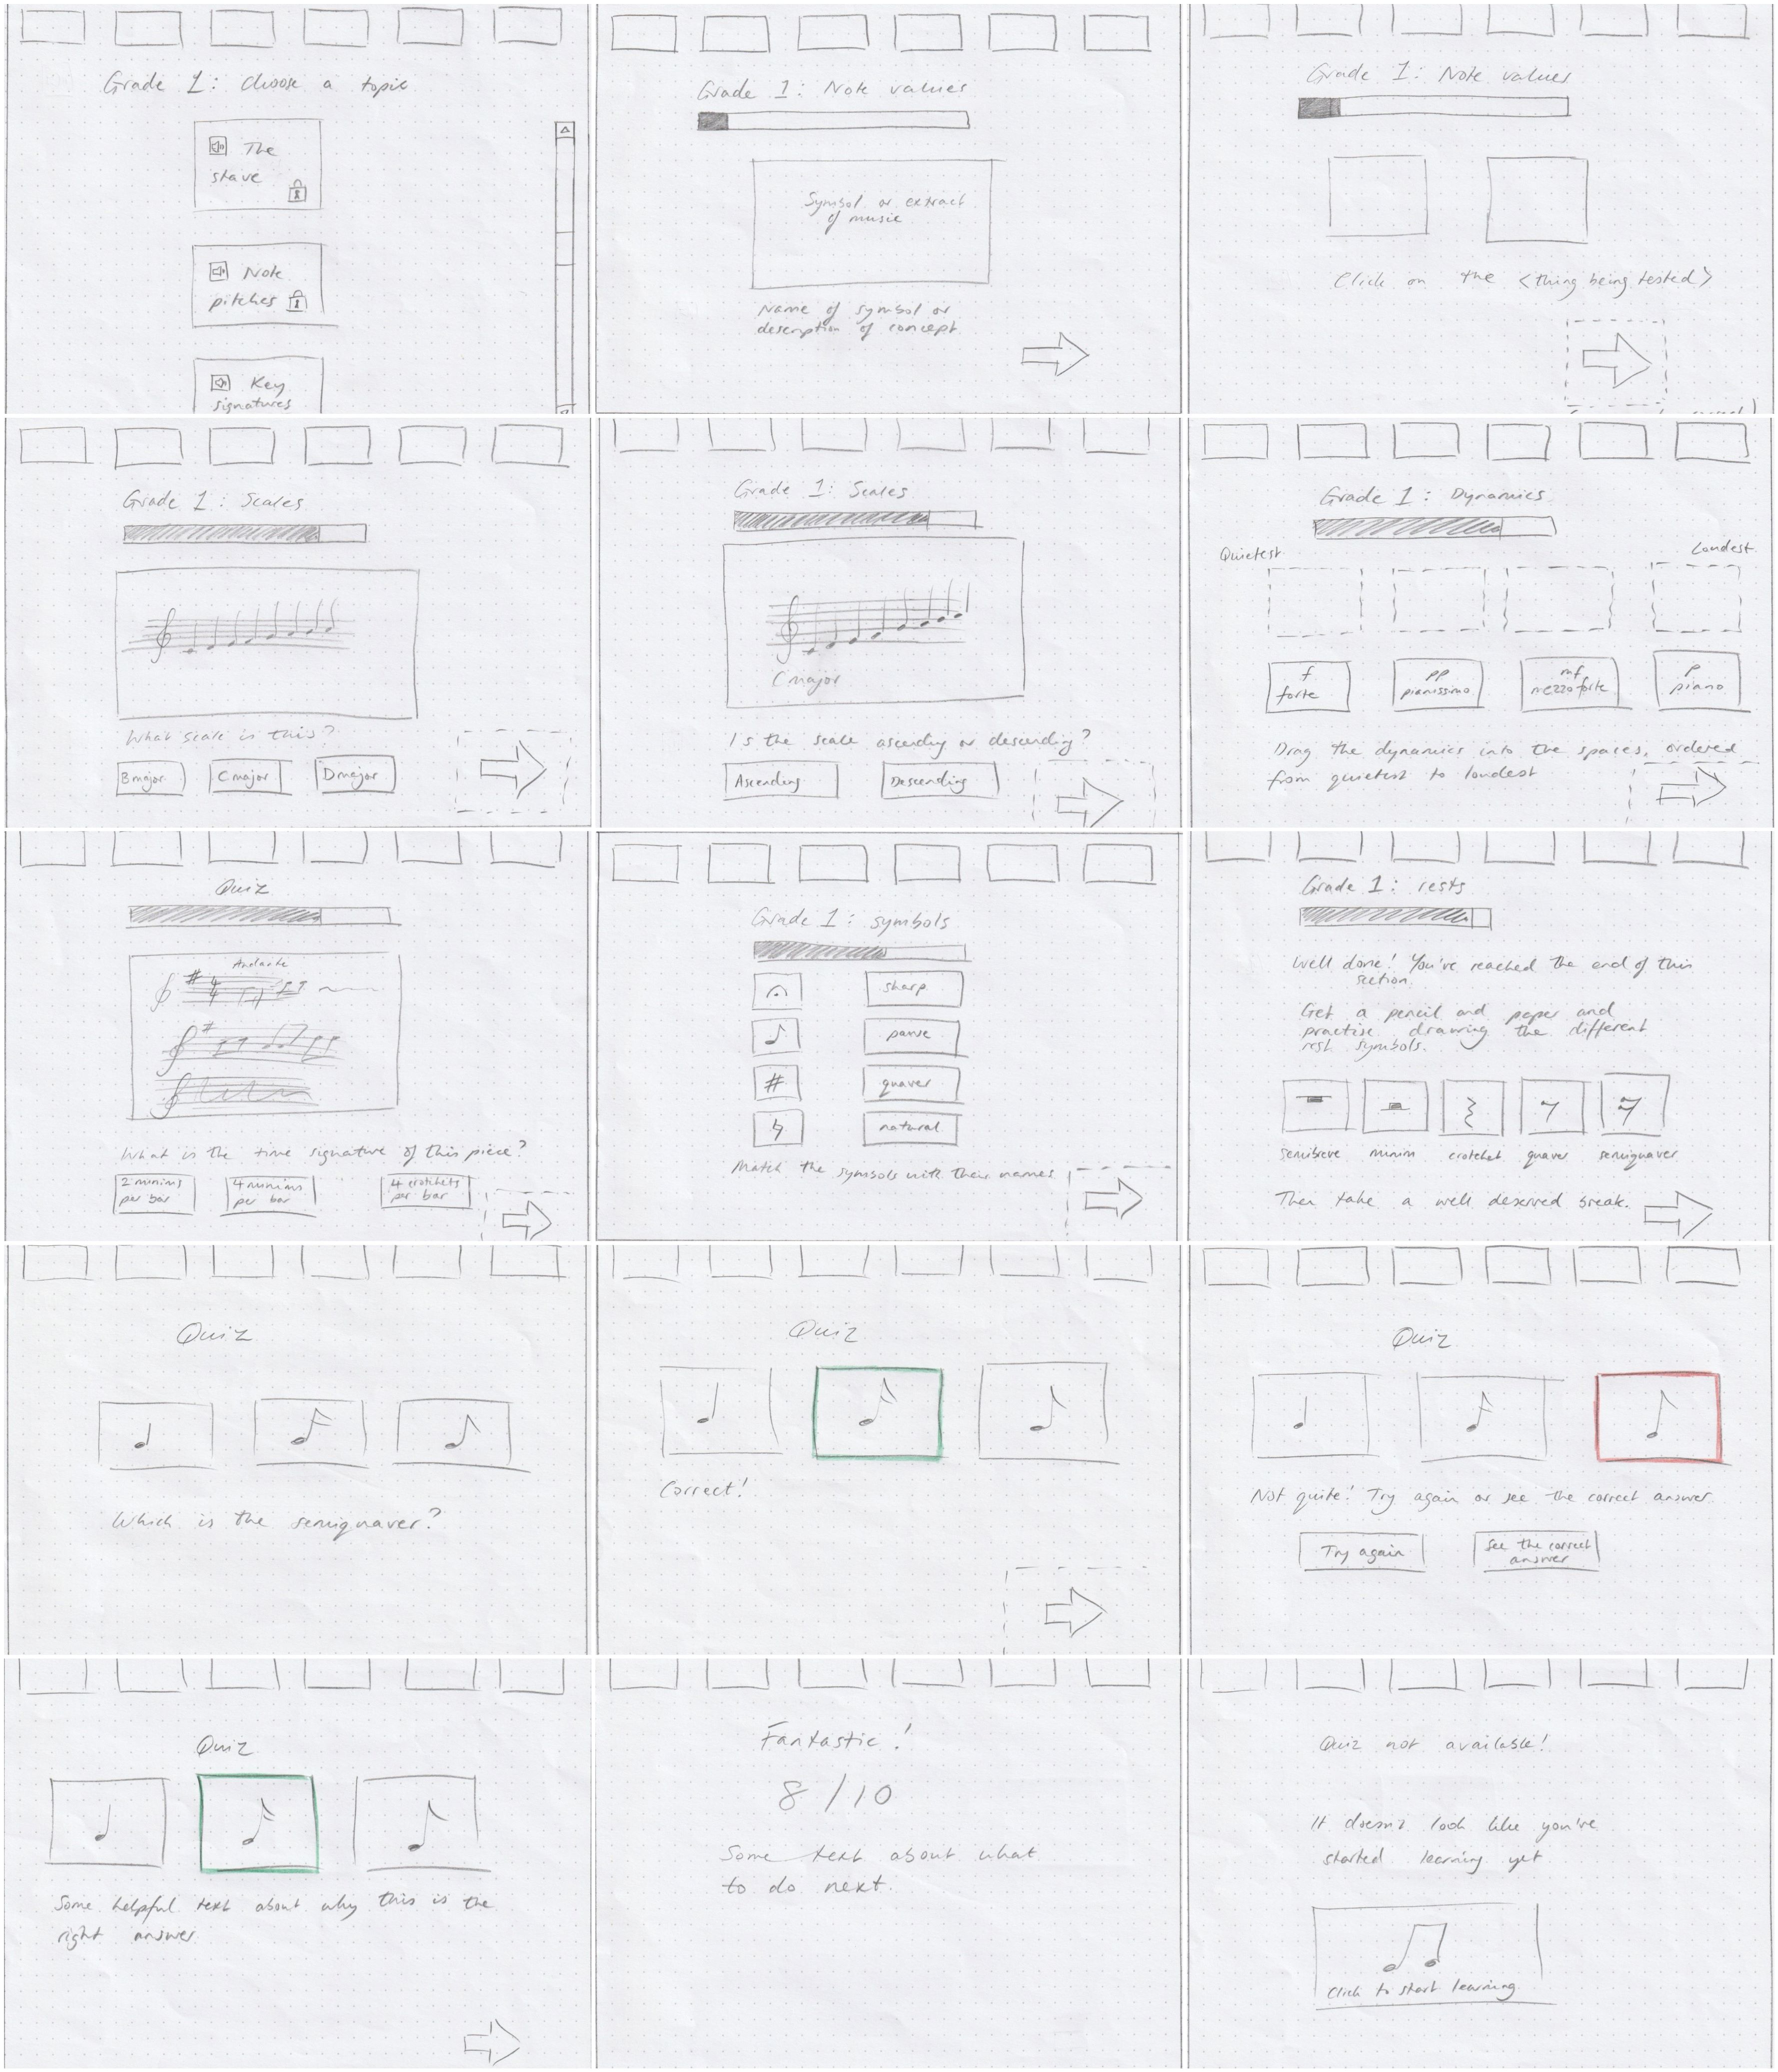 Grade 1: Choose a topic
The
stave
Note
pitches
Key
signatures
Grade 1: Note values
Symbol or extract
of music
Name of symbol or
description of concept
Grade 1: Note values
Click on the <thing being tested>
Grade 1: Scales
What scale is this?
B major
C major
D major
Grade 1: Scales
C major
Is the scale ascending or descending?
Ascending
Descending
Grade 1: Dynamics
Quietest
Loudest
f
forte
pp
pianissimo
mf
mezzo forte
p
piano
Drag the dynamics into the spaces, ordered
from quietest to loudest
Quiz
Andante
4
4
What is the time signature of this piece?
2 minims
per bar
4 minims
per bar
4 crotchets
per bar
Grade 1: symbols
sharp
pause
quaver
natural
Match the symbols with their names
Grade 1: rests
Well done! You've reached the end of this
section.
Get a pencil and paper and
practise drawing the different
rest symbols.
semibreve
minim
crotchet
quaver
semiquaver
Then take a well deserved break.
Quiz
Which is the semiquaver?
Quiz
Correct!
Quiz
Not quite! Try again or see the correct answer.
Try again
See the correct
answer
Quiz
Some helpful text about why this is the
right answer
Fantastic!
8/10
Some text about what
to do next.
Quiz not available!
It doesn't look like you've
started learning yet
Click to start learning